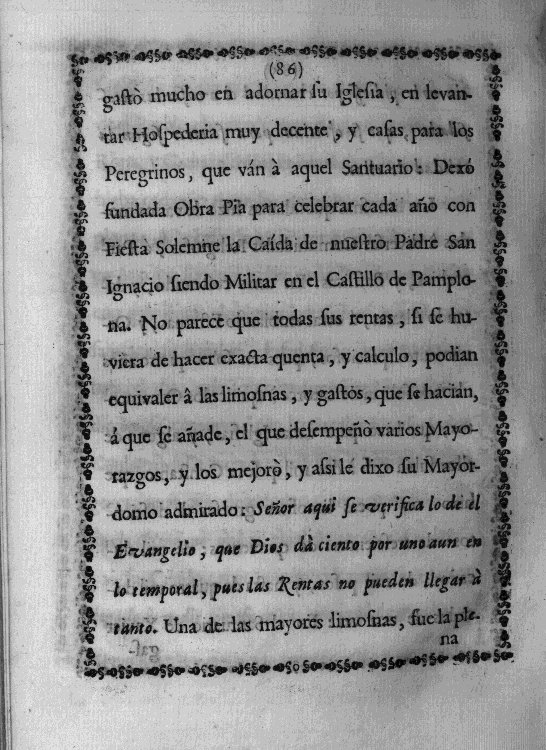 (86)
gastò mucho en adornar su Iglesia, en levan-
tar Hospederia muy decente, y casas para los
Peregrinos, que ván à aquel Santuario: Dexó
fundada Obra Pia para celebrar cada año con
Fiesta Solemne la Caída de nuestro Padre San
Ignacio siendo Militar en el Castillo de Pamplo-
na. No parece que todas sus rentas, si se hu-
viera de hacer exacta quenta, y calculo, podian
equivaler â las limosnas, y gastos, que se hacian,
á que se añade, el que desempeñò varios Mayo-
razgos, y los mejorò, y assi le dixo su Mayor-
domo admirado: Señor aqui se verifica lo de el
Evangelio, que Dios dà ciento por uno aun en
lo temporal, pues las Rentas no pueden llegar à
tanto. Una de las mayores limosnas, fue la ple-
na